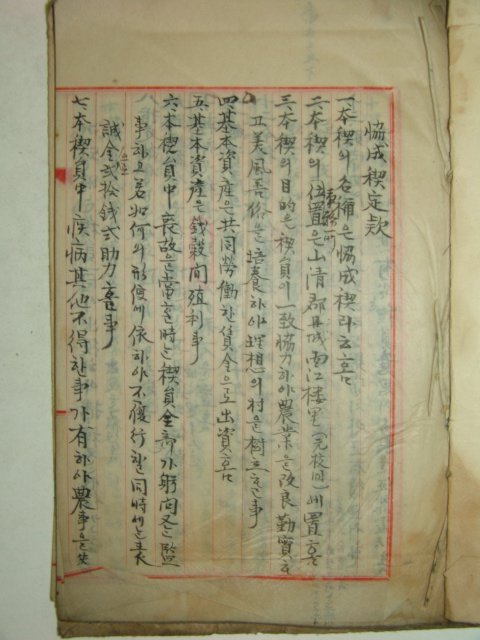 協成稧定款
一.本稧의 名稱은 協成稧라 云홈
二.本稧의 位置은 山淸郡丹城面江樓里(元校洞)에 置홈
事務所
三.本稧의 目的은 稧員이 一致協力하야 農業을 改良勤實
고 美風善俗을 培養하야 理想의 村을 樹立할事
四.基本資産은 共同勞働한 賃金으로 出資홈
五.基本資産은 錢穀間殖利事
六.本稧員中 喪故을 當한 時는 稧員全部가 躬問又는 監
事하고 若如何의 形便에 依하야 不履行할 同時에는 表
誠金 貳拾錢式助力홀事
七.本稧員中 疾病其他不得한 事가 有하야 農事을 失